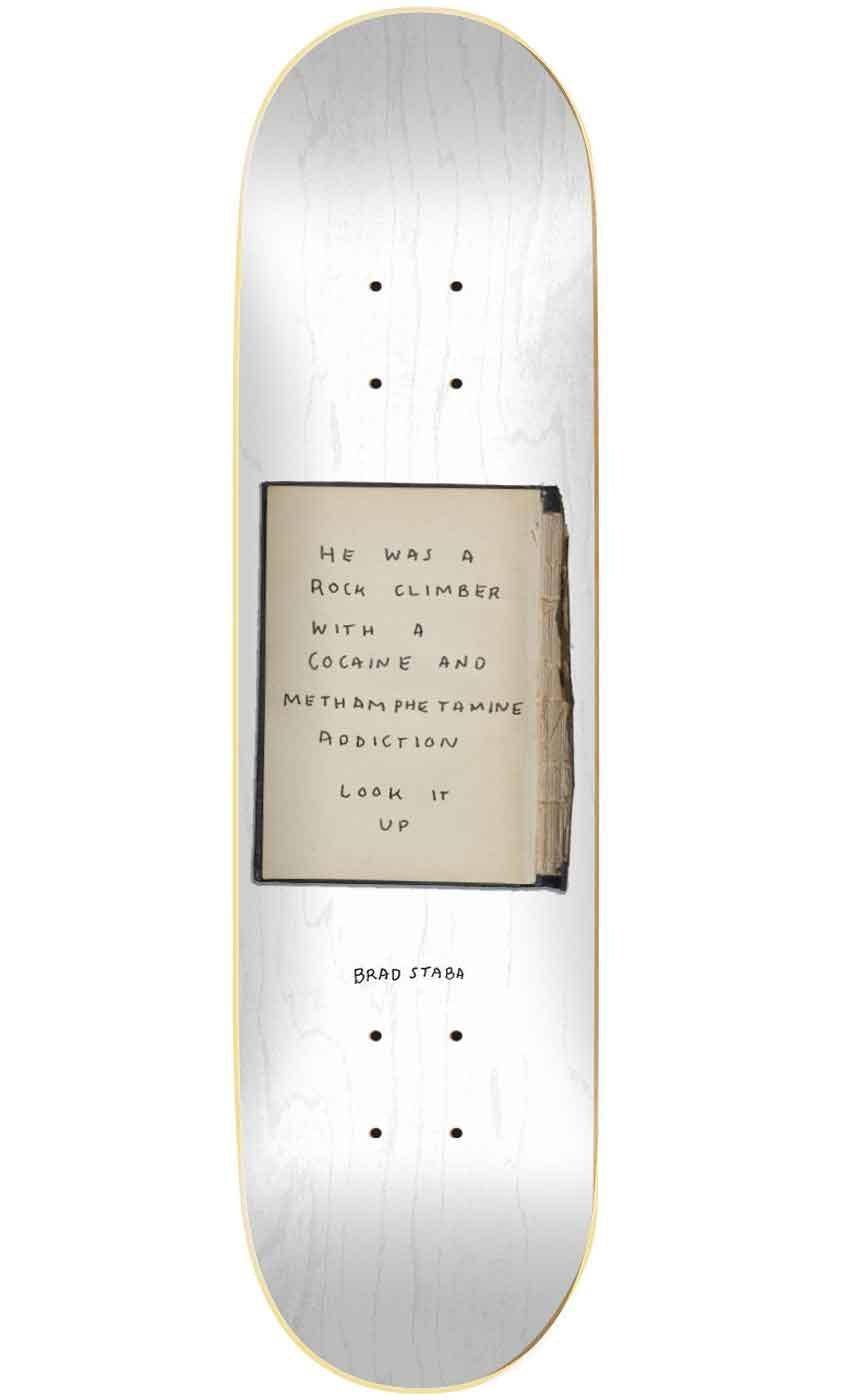 HE WAS A
ROCK CLIMBER
WITH A
COCAINE AND
METHAMPHETAMINE
ADDICTION
LOOK IT
UP
BRAD STABA